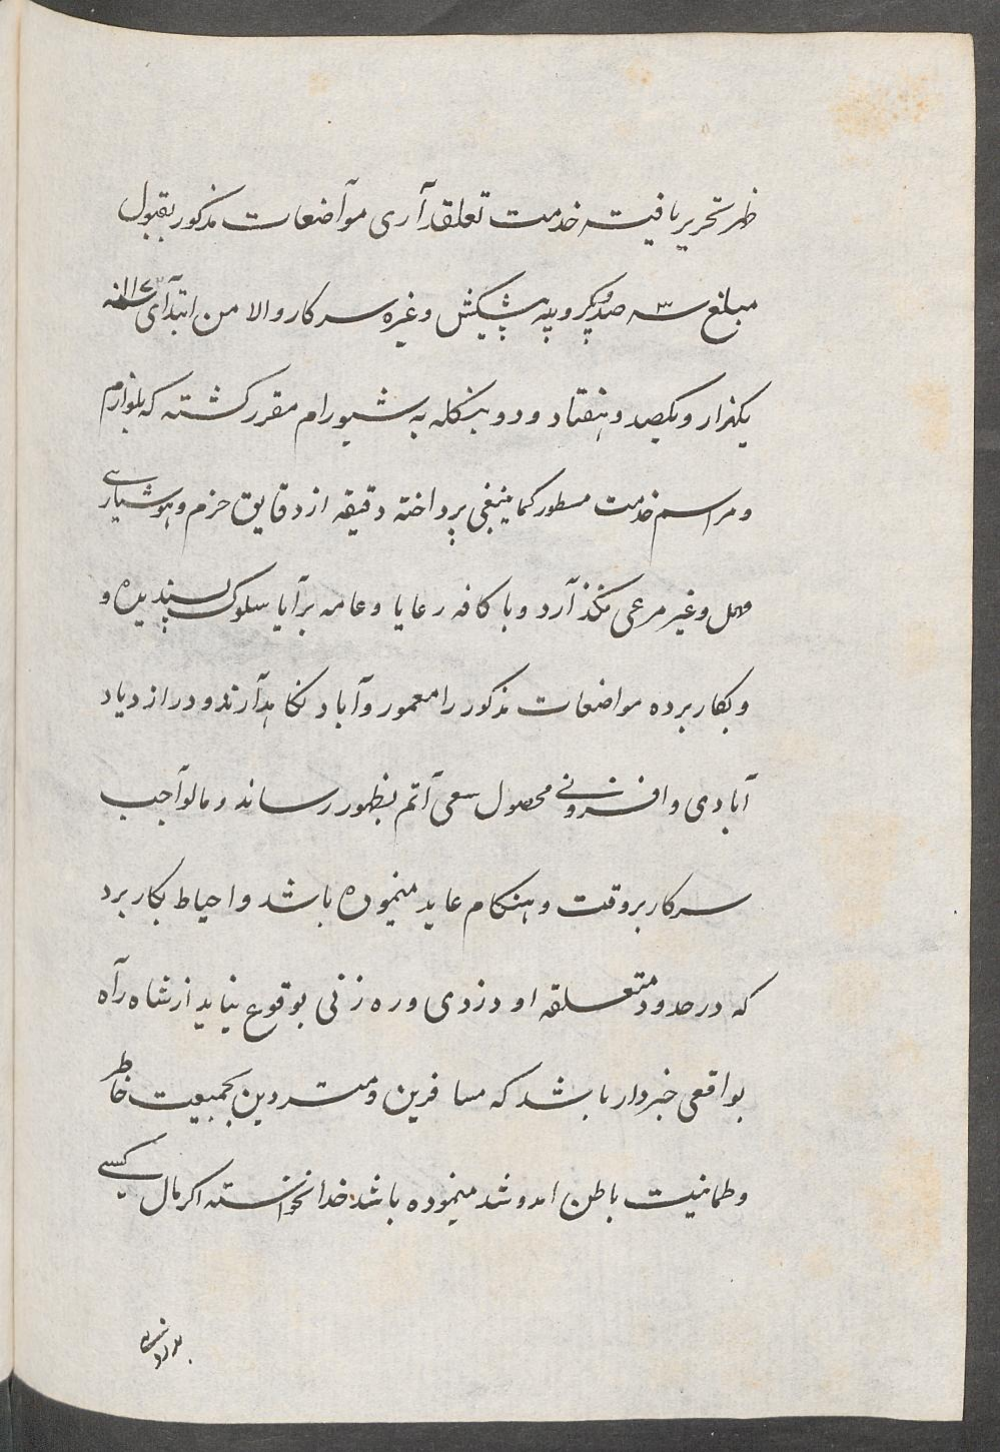 ظهر تحریر یافته خدمت تعلقدآری موآضعات مذکور بقبول
مبلغ سه ۳ صد و یکروپیه پیشکش وغیره سرکار والا من ابتدآی سنه ۱۱۷۲
یکهزار و یکصد و هفتاد و دو بنکله به شیورام مقرر کشته که بلوازم
و مراسم خدمت مسطور کماینبغی پرداخته دقیقه از دقایق حزم و هوشیاری
مهمل و غیر مرعی نکذآرد و با کافه رعایا و عامه برآیا سلوک پسندیده و
و بکار برده مواضعات مذکور را معمور و آباد نکاهدآرند و در ازدیاد
آبادی و افزونی محصول سعی آتم بظهور رساند و مالوآجب
سرکار بروقت و هنکام عاید مینموده باشد و احیاط بکار برد
که در حدود متعلقه او دزدی و ره زنی بوقوع نیاید از شاه رآه
بواقعی خبردار باشد که مسافرین و متردین بجمیعت خاطر
و طمانیت باطن امدوشد مینموده باشد خدانخواسته اکر مال کسی